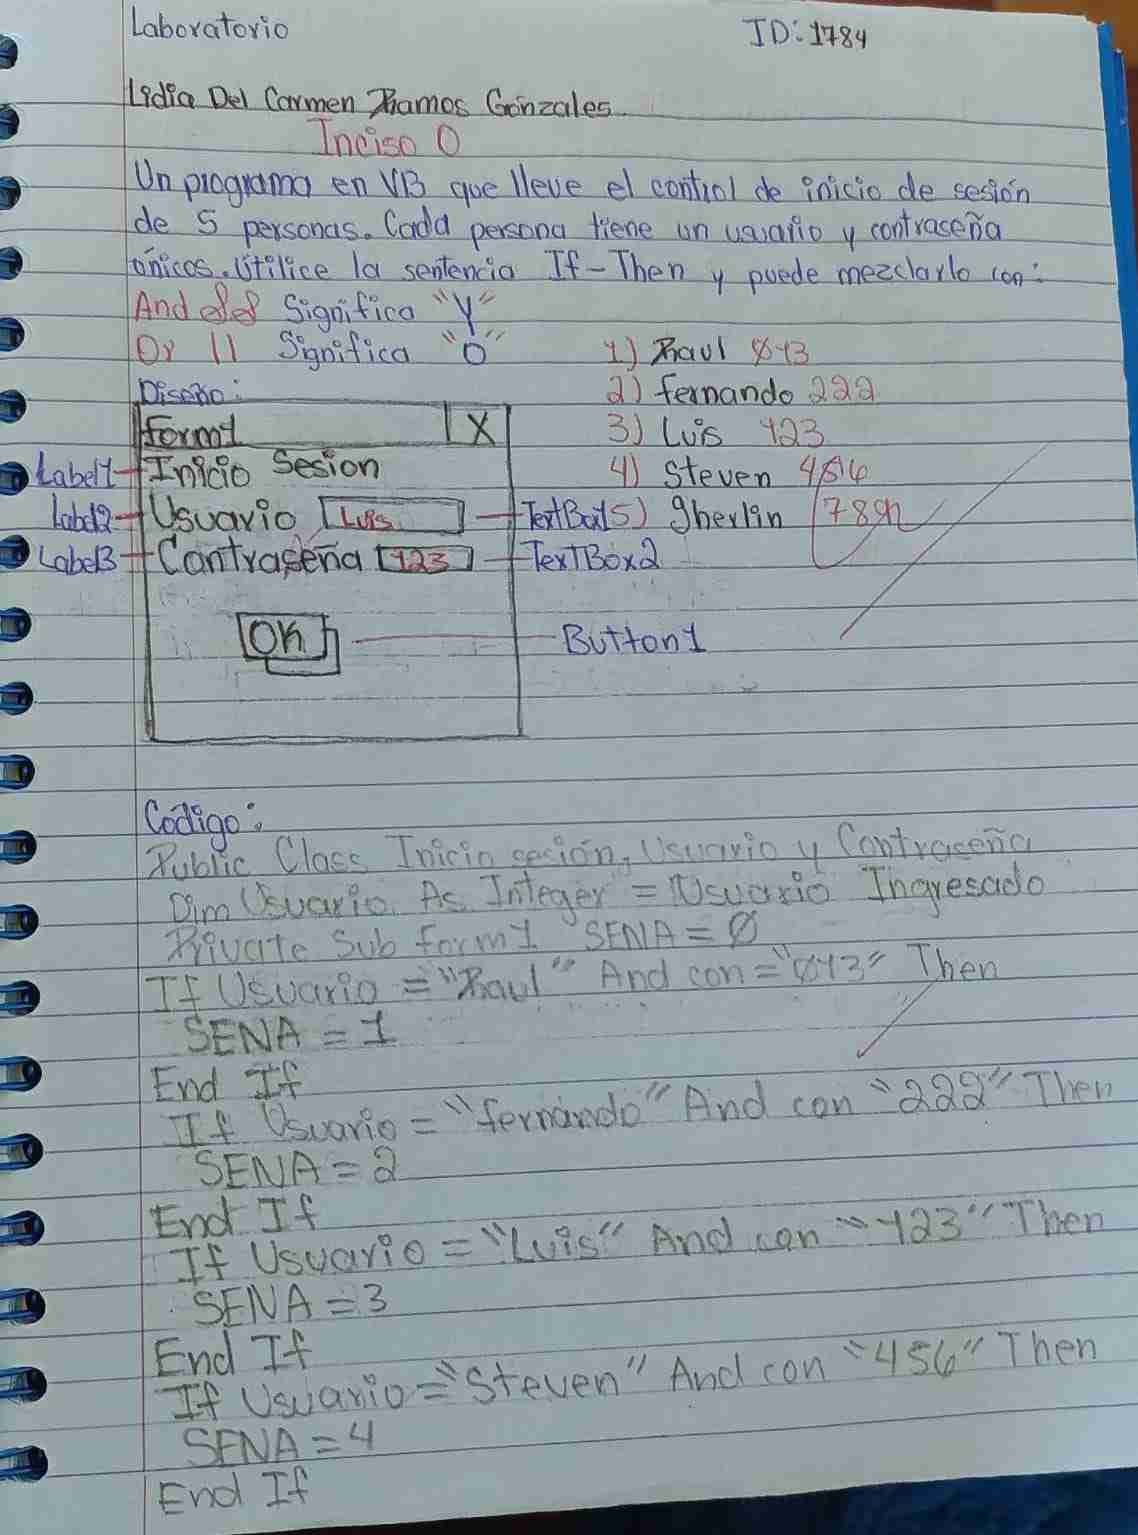 Laboratorio ID: 1784
Lidia Del Carmen Ramos Gonzales.
Inciso O
Un programa en VB que lleve el control de inicio de sesión
de 5 personas. Cada persona tiene un usuario y contraseña
únicos. Utilice la sentencia If-Then y puede mezclarlo con:
And && Significa "Y"
Or || Significa "O"
1) Raul 043
Diseño:
2) fernando 222
form1 X
3) Luis 123
Label1 Inicio Sesion
4) Steven 456
Label2 Usuario Luis TextBox1
5) gherlin 789
Label3 Contraseña 123 TexTBox2
OK Button1
Código:
Public Class Inicio sesión, Usuario y Contraseña
Dim Usuario As Integer = Usuario Ingresado
Private Sub form1 SENA = 0
If Usuario = "Raul" And con = "043" Then
SENA = 1
End If
If Usuario = "fernando" And con "222" Then
SENA = 2
End If
If Usuario = "Luis" And con "123" Then
SENA = 3
End If
If Usuario = "Steven" And con "456" Then
SENA = 4
End If